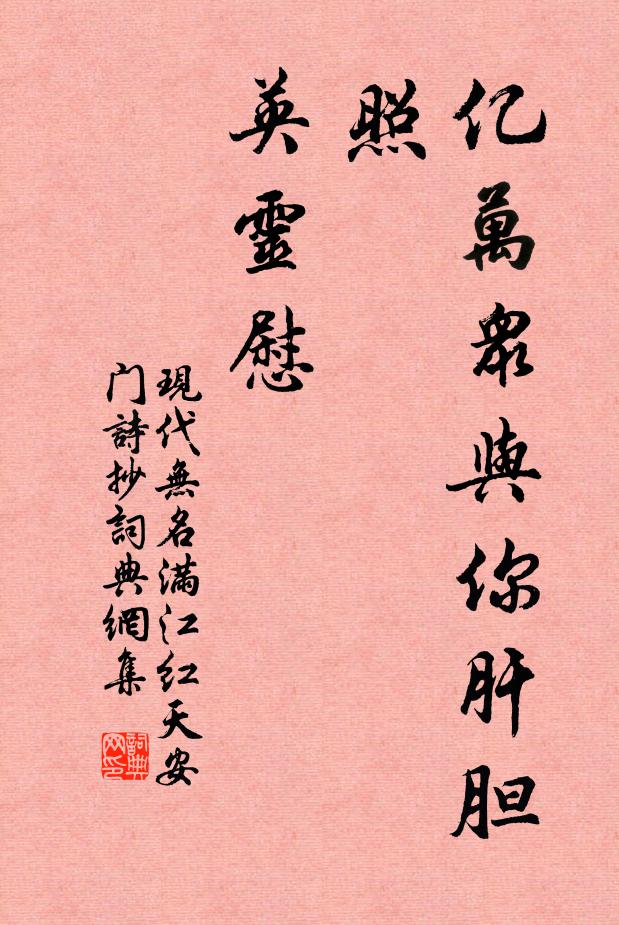 亿萬眾與你肝胆
照
英靈慰
現代無名满江红天安
门詩抄詞典網集
詞典
网印